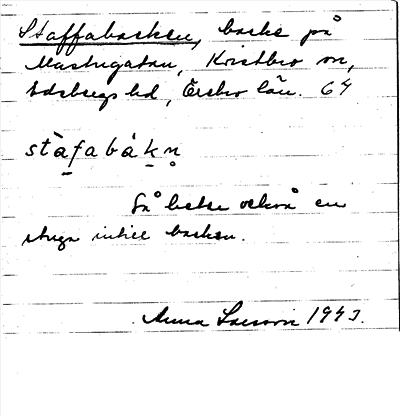 Staffabacken, backe på
Mastugatan, Kristbro sn,
Edsbergs hd, Örebro län. 64
stàfabákn̥
Så heter också en
stuga intill backen.
Anna Larsson 1943.